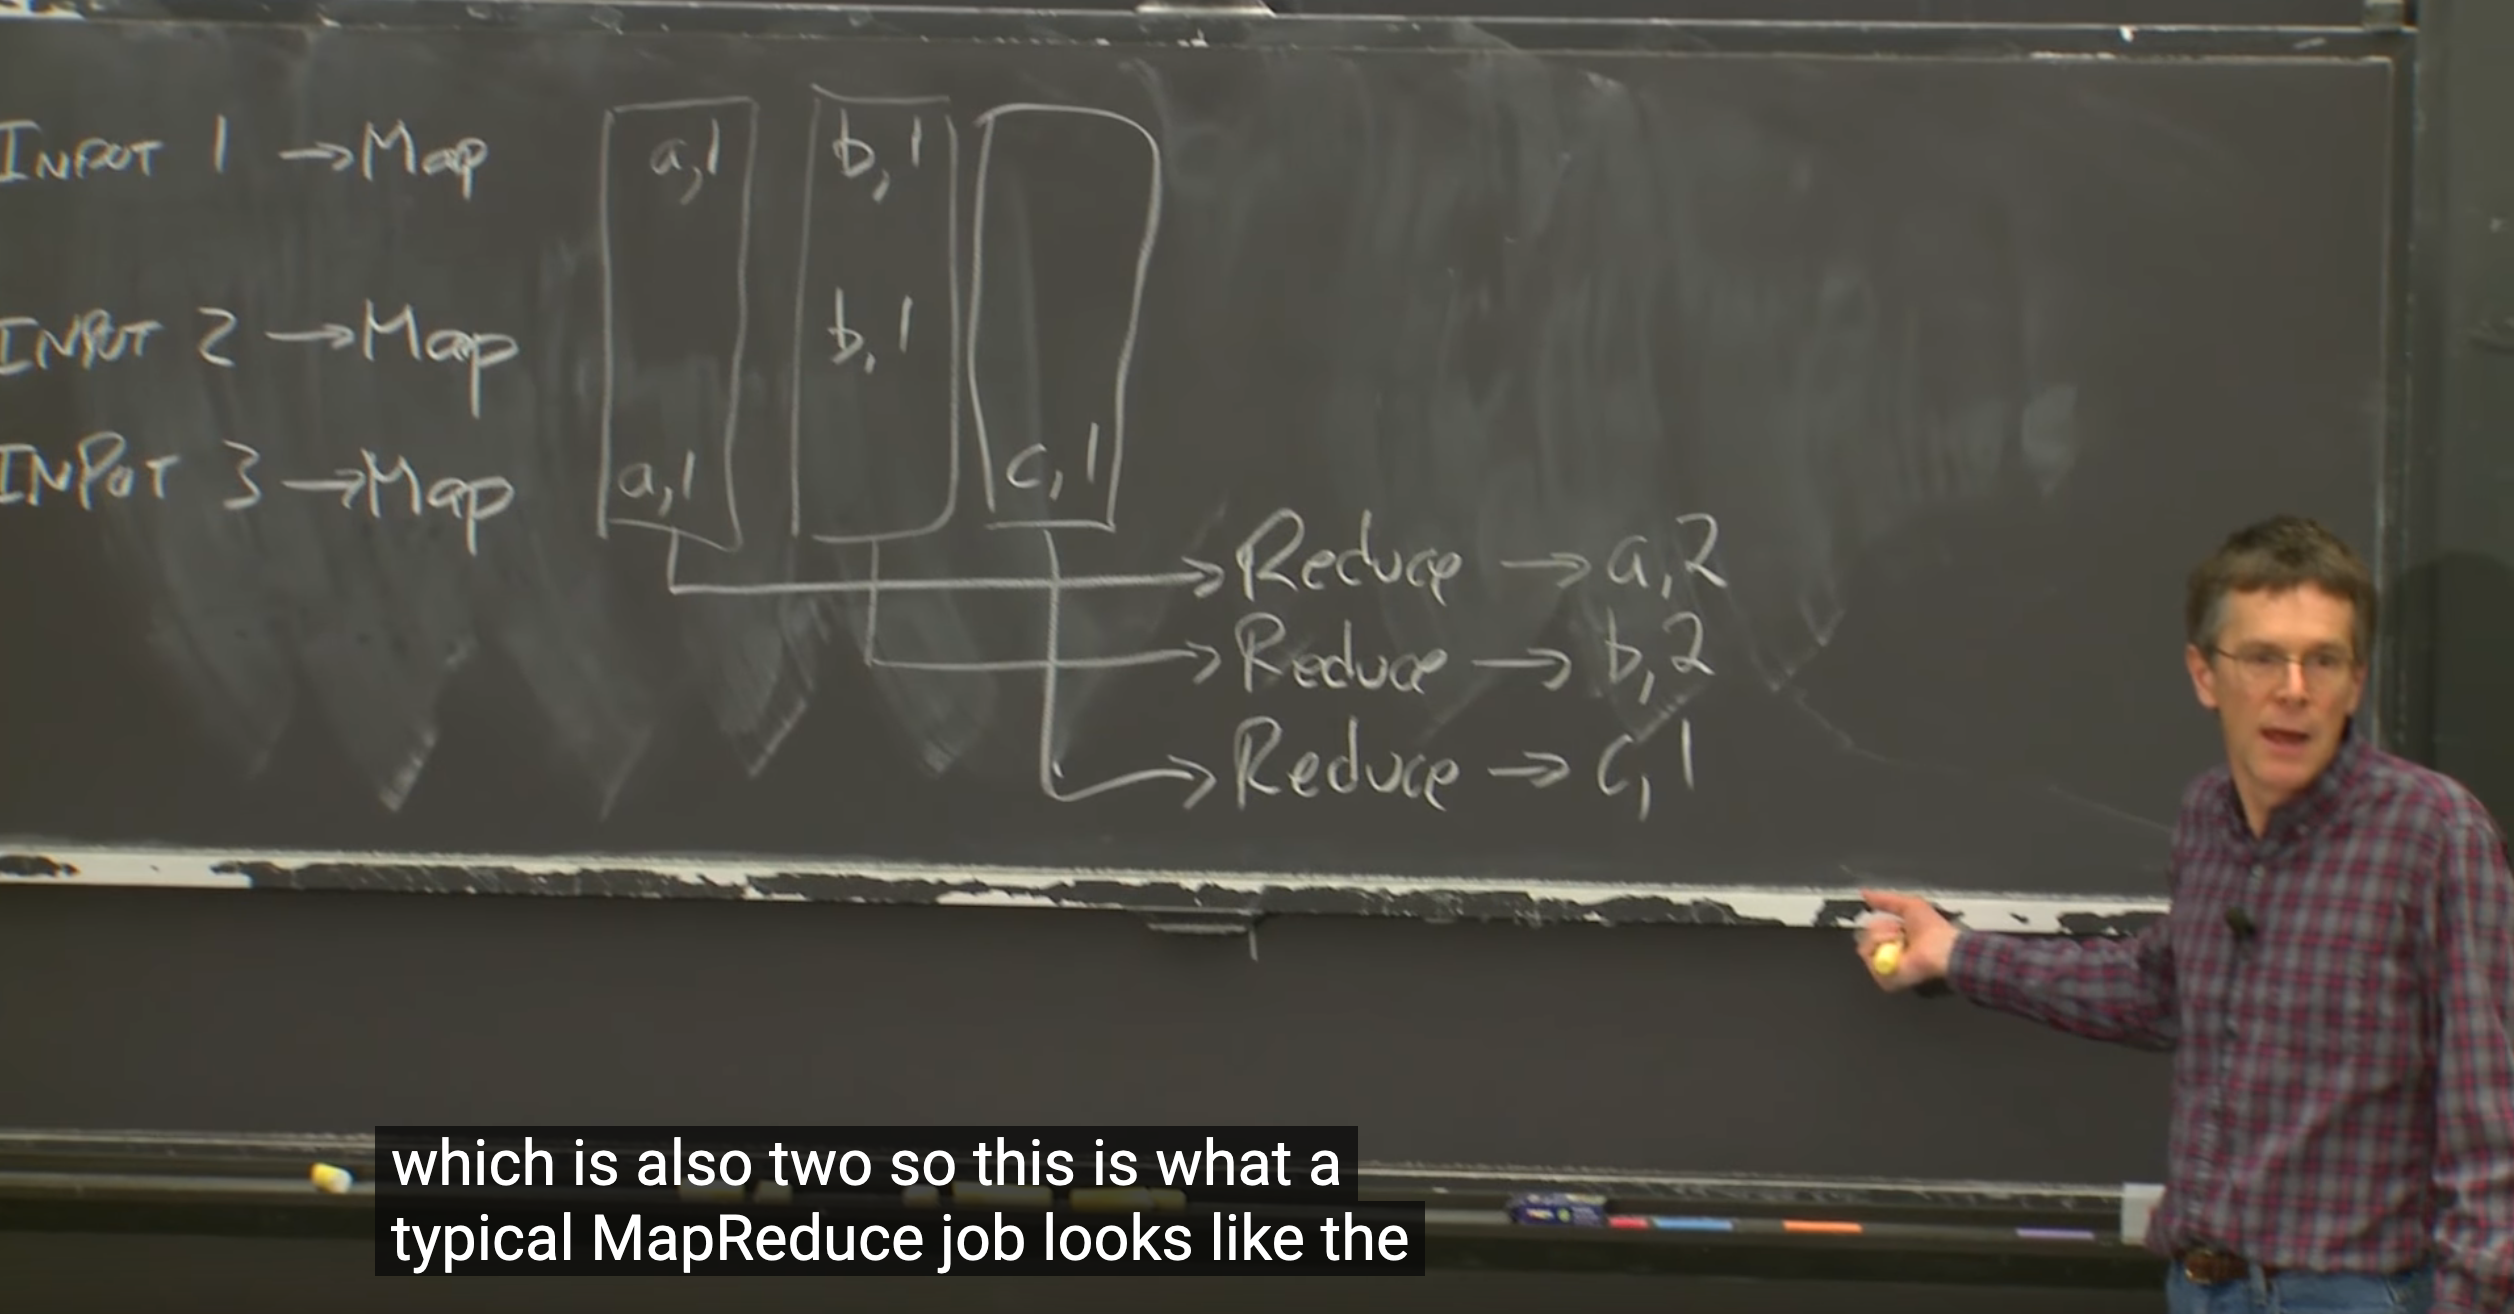 INPUT 1 → Map a,1 b,1
INPUT 2 → Map b,1
INPUT 3 → Map a,1 c,1
→ Reduce → a,2
→ Reduce → b,2
→ Reduce → c,1
which is also two so this is what a
typical MapReduce job looks like the